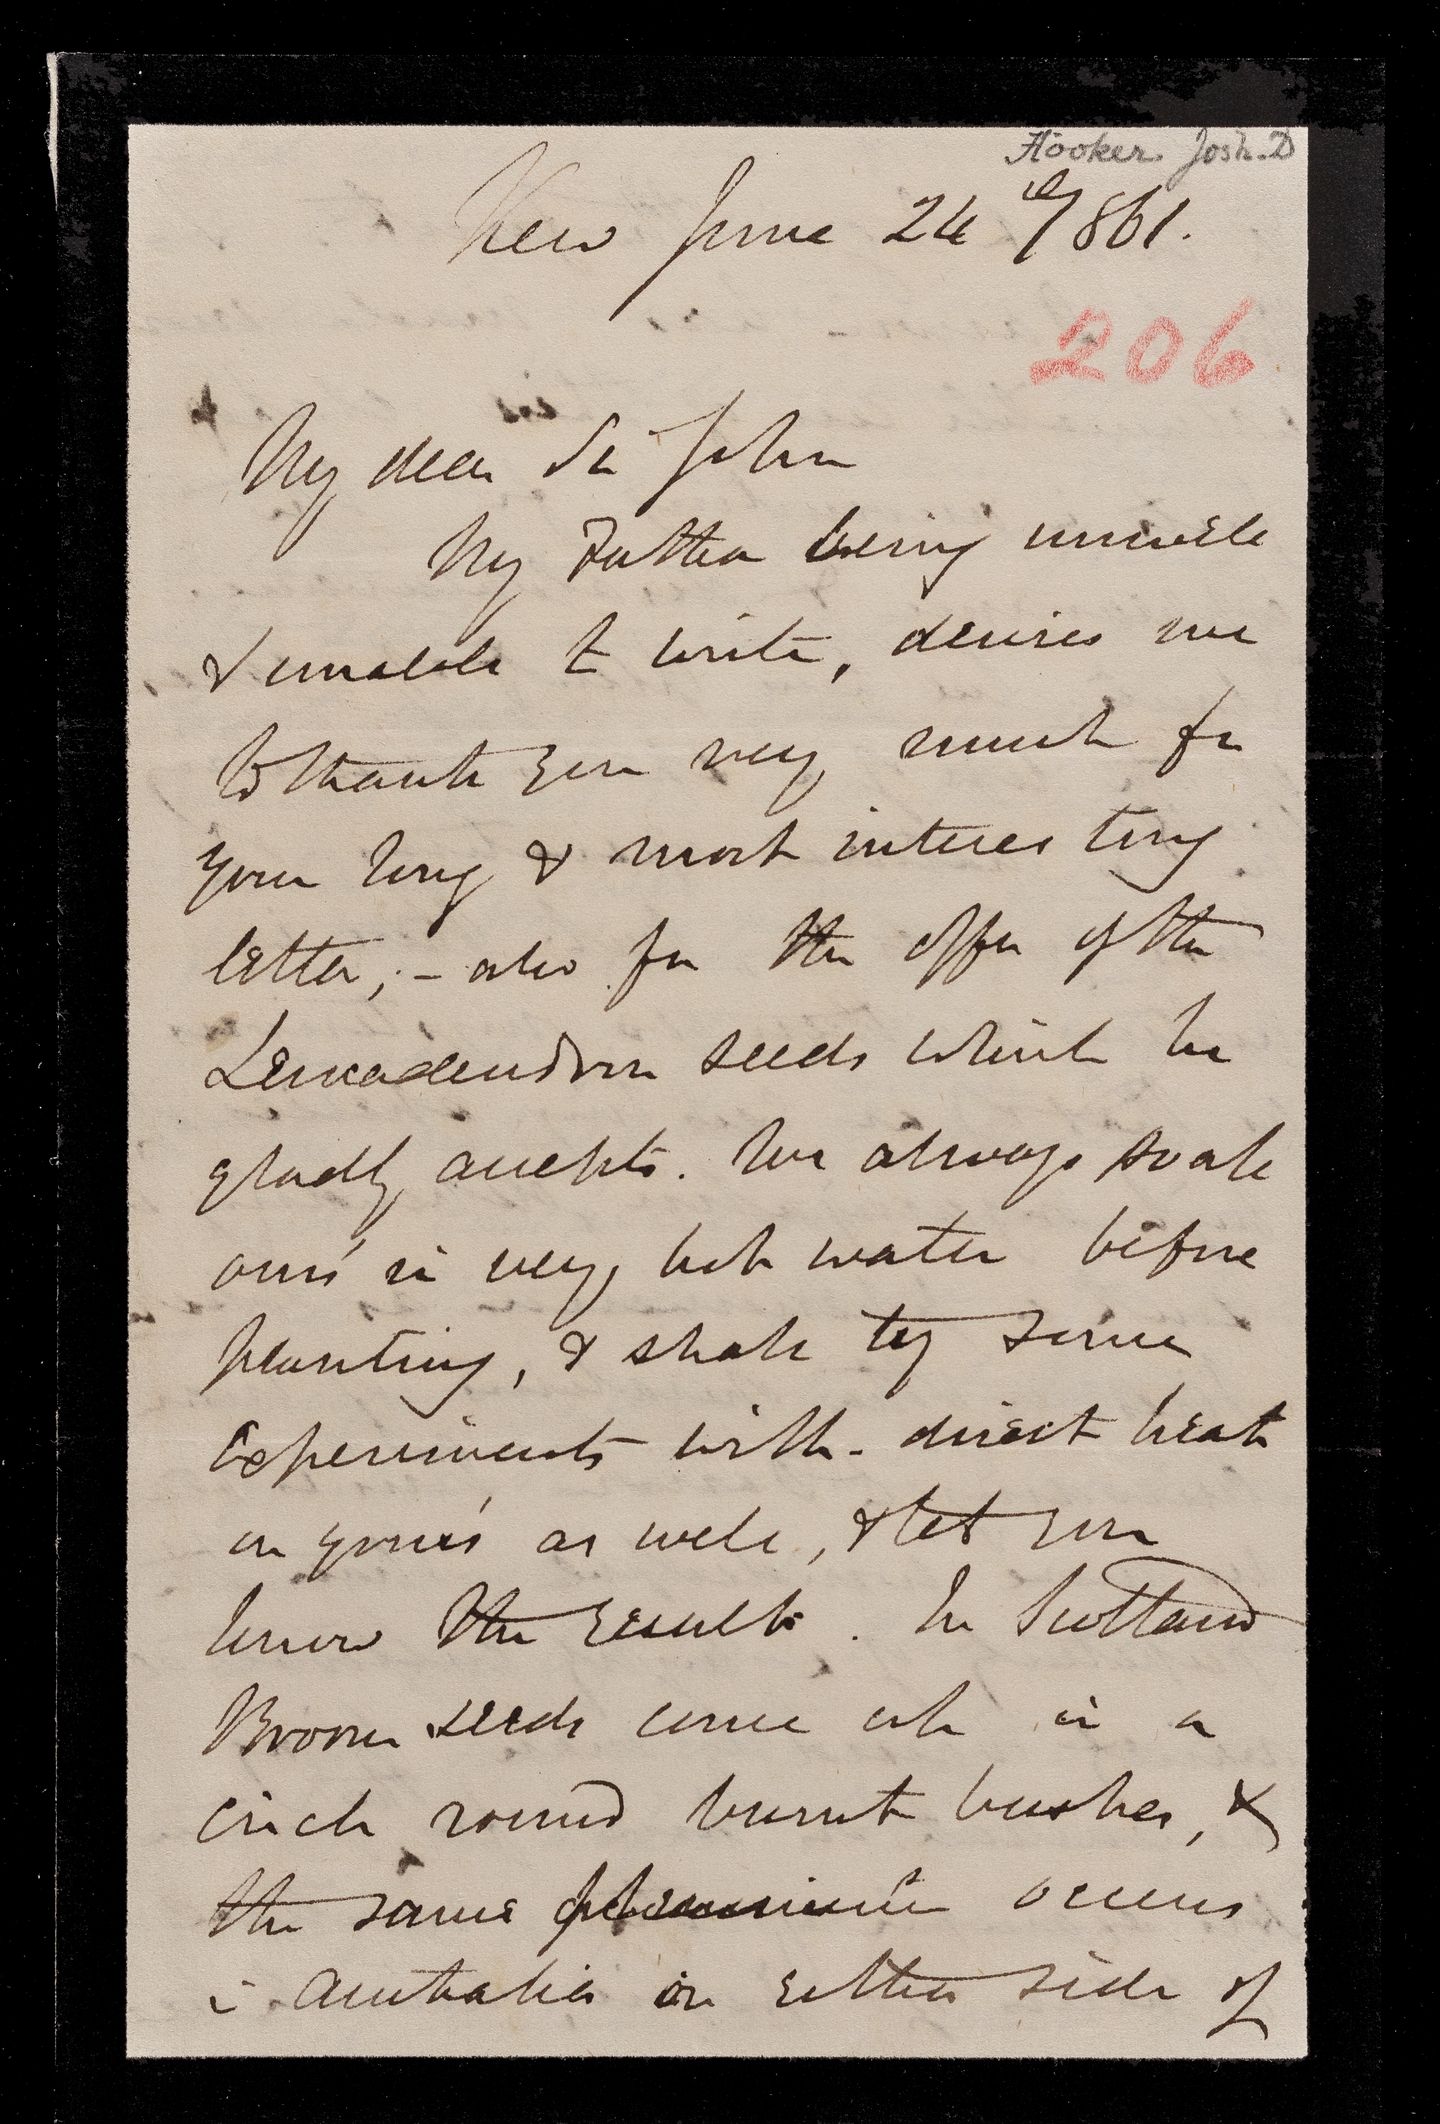 Hooker Josh. D
Kew June 24th/861.
206
My dear Sir John
My Father being unwell
& unable to write, desires me
to thank you very much for
your long & most interesting
letter; – also for the offer of the
Leucadendron seeds which he
gladly accepts. We always soak
ours' in very hot water before
planting, & shall try some
experiments with direct heat
on yours' as well, & let you
know the results. In Scotland
Broom seeds come up in a
circle round burnt bushes, &
the same occurs
in Australia on either side of